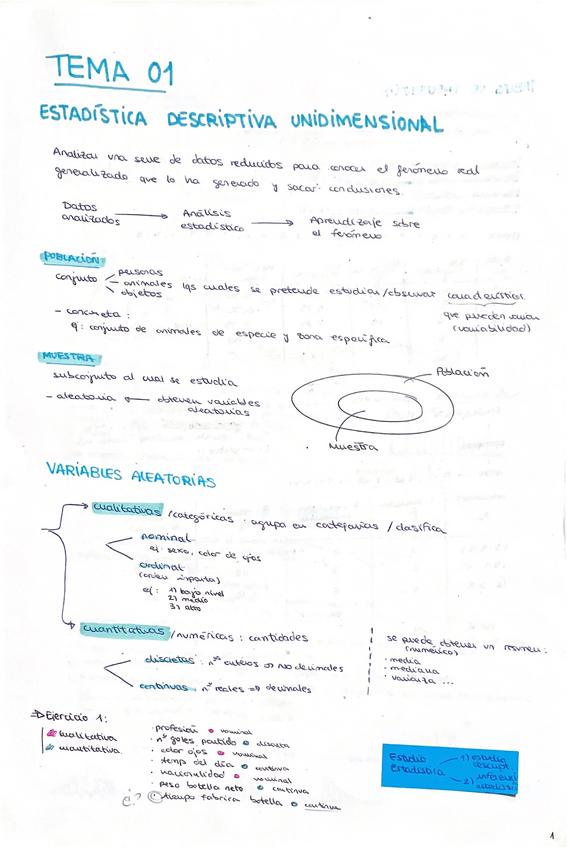 TEMA 01
ESTADÍSTICA DESCRIPTIVA UNIDIMENSIONAL
Analizar una serie de datos reducidos para conocer el fenómeno real
generalizado que lo ha generado y sacar conclusiones.
Datos analizados → Análisis estadístico → Aprendizaje sobre el fenómeno
POBLACIÓN
conjunto personas
animales
objetos
los cuales se pretende estudiar/observar características
que pueden variar
(variabilidad)
- concreta:
ej: conjunto de animales de especie y zona específica
MUESTRA
subconjunto al cual se estudia
- aleatoria obtienen variables
aleatorias
Población
Muestra
VARIABLES ALEATORIAS
cualitativas /categóricas: agrupa en categorías / clasifica
nominal
ej: sexo, color de ojos
ordinal
(orden importa)
ej: 1) bajo nivel
2) medio
3) alto
cuantitativas /numéricas: cantidades
discretas: nºs enteros ⇒ no decimales
continuas: nº reales ⇒ decimales
se puede obtener un resumen:
(numérico)
· media
· mediana
· varianza ...
⇒ Ejercicio 1:
cualitativa
cuantitativa
· profesión nominal
· nº goles partido discreta
· color ojos nominal
· temp del día continua
· nacionalidad nominal
· peso botella neto continua
¿? tiempo fabrica botella continua
Estudio
Estadística
1) estudio
descript.
2)
1